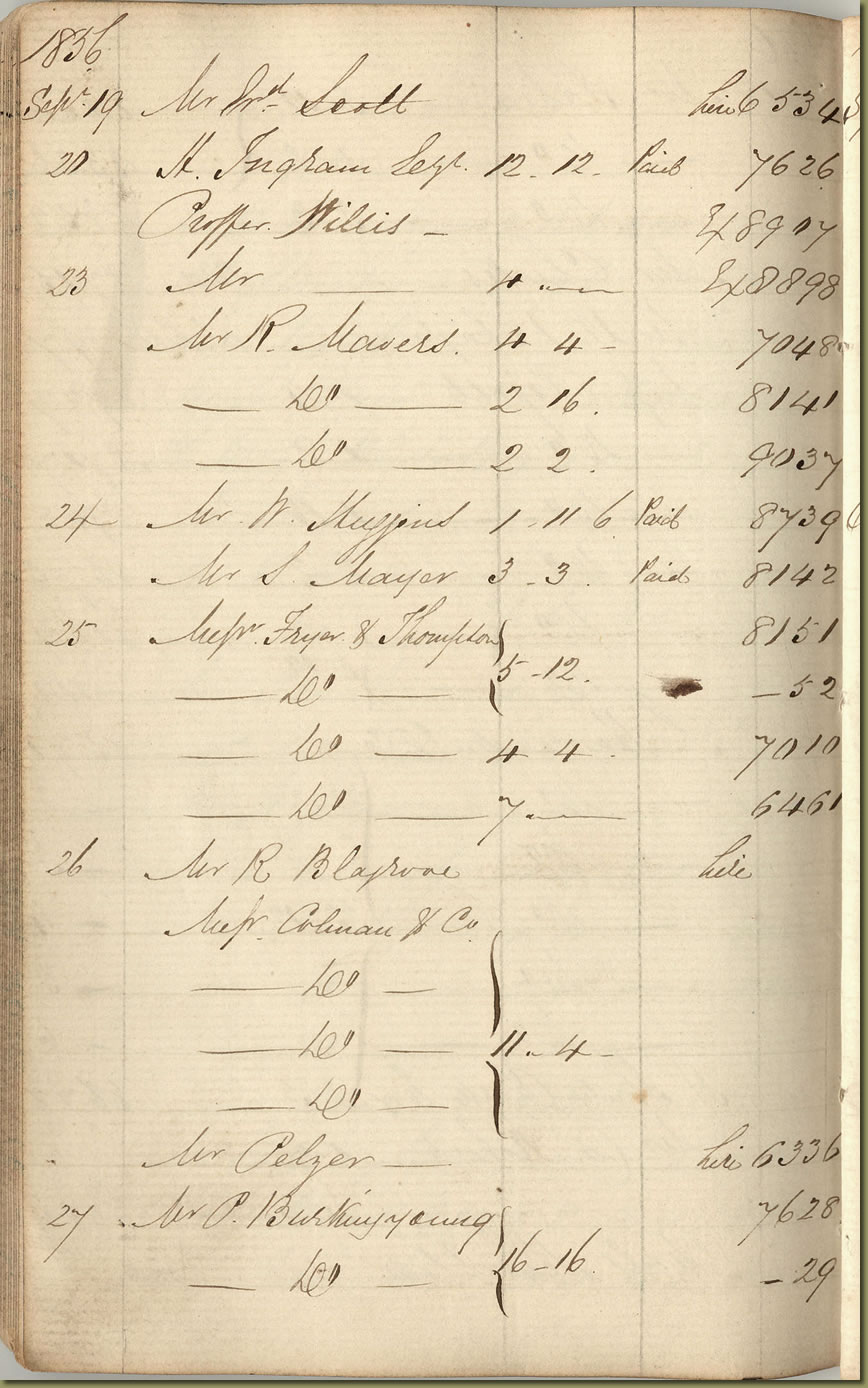 1836
Sepr. 19 Mr Wm Scott hire 6 534
20 H. Ingram Esqr. 12 - 12 - Paid 7626
Proffer. Willis - Ex 8907
23 Mr — 4 " — Ex 8898
Mr R. Mavers. 4 4 - 7048
— Do — 2 16 . 8141
— Do — 2 2 . 9037
24 Mr W. Huggins 1 - 11 6 Paid 8739
Mr S. Mayer 3 - 3 . Paid 8142
25 Messrs. Fryer & Thompson 8151
— Do — 5 - 12 . - 52
— Do — 4 4 . 7010
— Do — 7 " — 6461
26 Mr R Blagrove hire
Messrs. Colman & Co
— Do —
— Do — 11 " 4 -
— Do —
Mr Pelzer — hire 6336
27 Mr P. Burkinyoung 7628
— Do — 16 - 16 . - 29